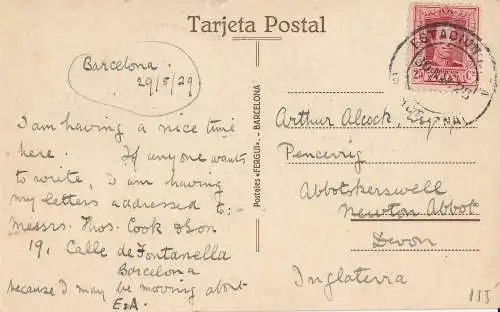 Tarjeta Postal
Barcelona.
29/8/29
I am having a nice time
here. If any one wants
to write, I am having
my letters addressed to:-
Messrs. Thos. Cook & Son
19, Calle de Fontanella
Barcelona
because I may be moving about
E.A.
Postales «FERGUI». - BARCELONA
25 Cts
Arthur Alcock, Esq
Pencerrig
Abbotskerswell
Newton Abbot
Devon
Inglaterra
115